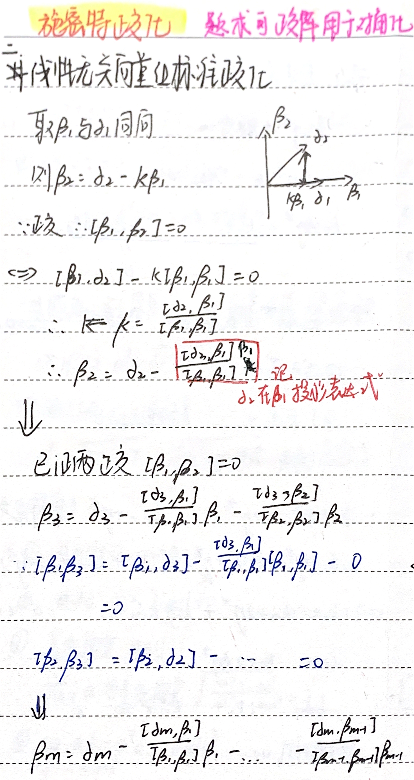 施密特正交化 题求可逆阵用于对角化
二
将线性无关向量组标准正交化
取β₁与α₁同向
则β₂=α₂-kβ₁
β₂ α₂
kβ₁ α₁ β₁
∵正交 ∴[β₁,β₂]=0
⇔ [β₁,α₂]-k[β₁,β₁]=0
∴ k=[α₂,β₁]/[β₁,β₁]
∴ β₂=α₂-[α₂,β₁]/[β₁,β₁] β₁ 记
α₂在β₁投影表达式
⇓
已证两正交 [β₁,β₂]=0
β₃=α₃-[α₃,β₁]/[β₁,β₁] β₁-[α₃,β₂]/[β₂,β₂] β₂
∵[β₁,β₃]=[β₁,α₃]-[α₃,β₁]/[β₁,β₁] [β₁,β₁]-0
=0
[β₂,β₃]=[β₂,α₂]-… =0
⇓
βm=αm-[αm,β₁]/[β₁,β₁] β₁-…-[αm,βm-1]/[βm-1,βm-1] βm-1